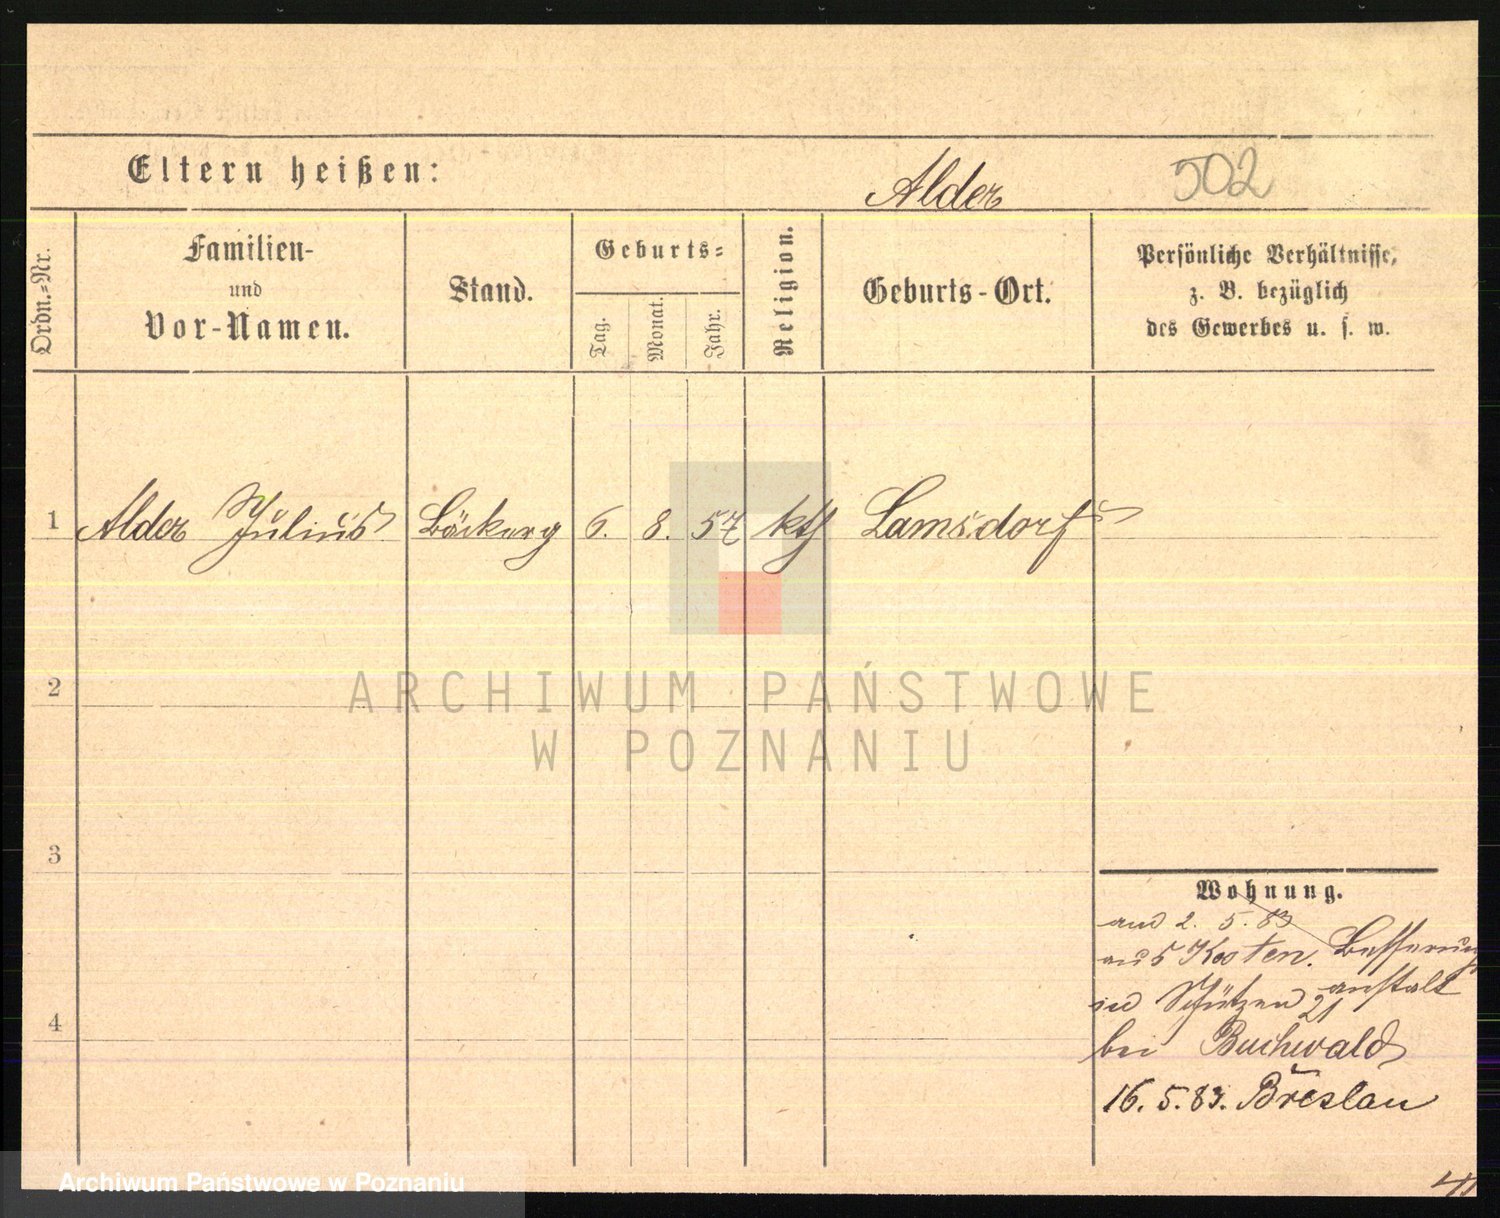 Eltern heißen:
Alder 502
Ordn.=Nr.
Familien-
und
Vor-Namen.
Stand.
Geburts=
Tag.
Monat.
Jahr.
Religion.
Geburts-Ort.
Persönliche Verhältnisse,
z. B. bezüglich
des Gewerbes u. s. w.
1 Alder Julius Bäckerg 6. 8. 57 kth Lamsdorf
2
ARCHIWUM PAŃSTWOWE
W POZNANIU
3
Wohnung.
2. 5. 83
aus Kosten. Besserungs
anstalt
in Schützen 21
bei Buchwald
4
16. 5. 83. Breslau
Archiwum Państwowe w Poznaniu